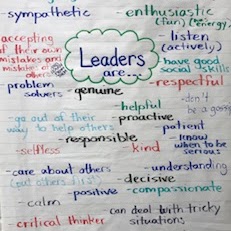 sympathetic
enthusiastic
(fun) (energy)
-accepting
of their own
mistakes and
mistakes of
others
Leaders
are...
- listen
(actively)
- have good
social skills
-problem
solvers
-genuine
-respectful
-helpful
-don't
be a gossip
-go out of their
way to help others
-proactive
-patient
-responsible
-know
when to be
serious
-selfless
kind
-care about others
(put others first)
-understanding
-decisive
-positive
-compassionate
-calm
-critical thinker
can deal with tricky
situations